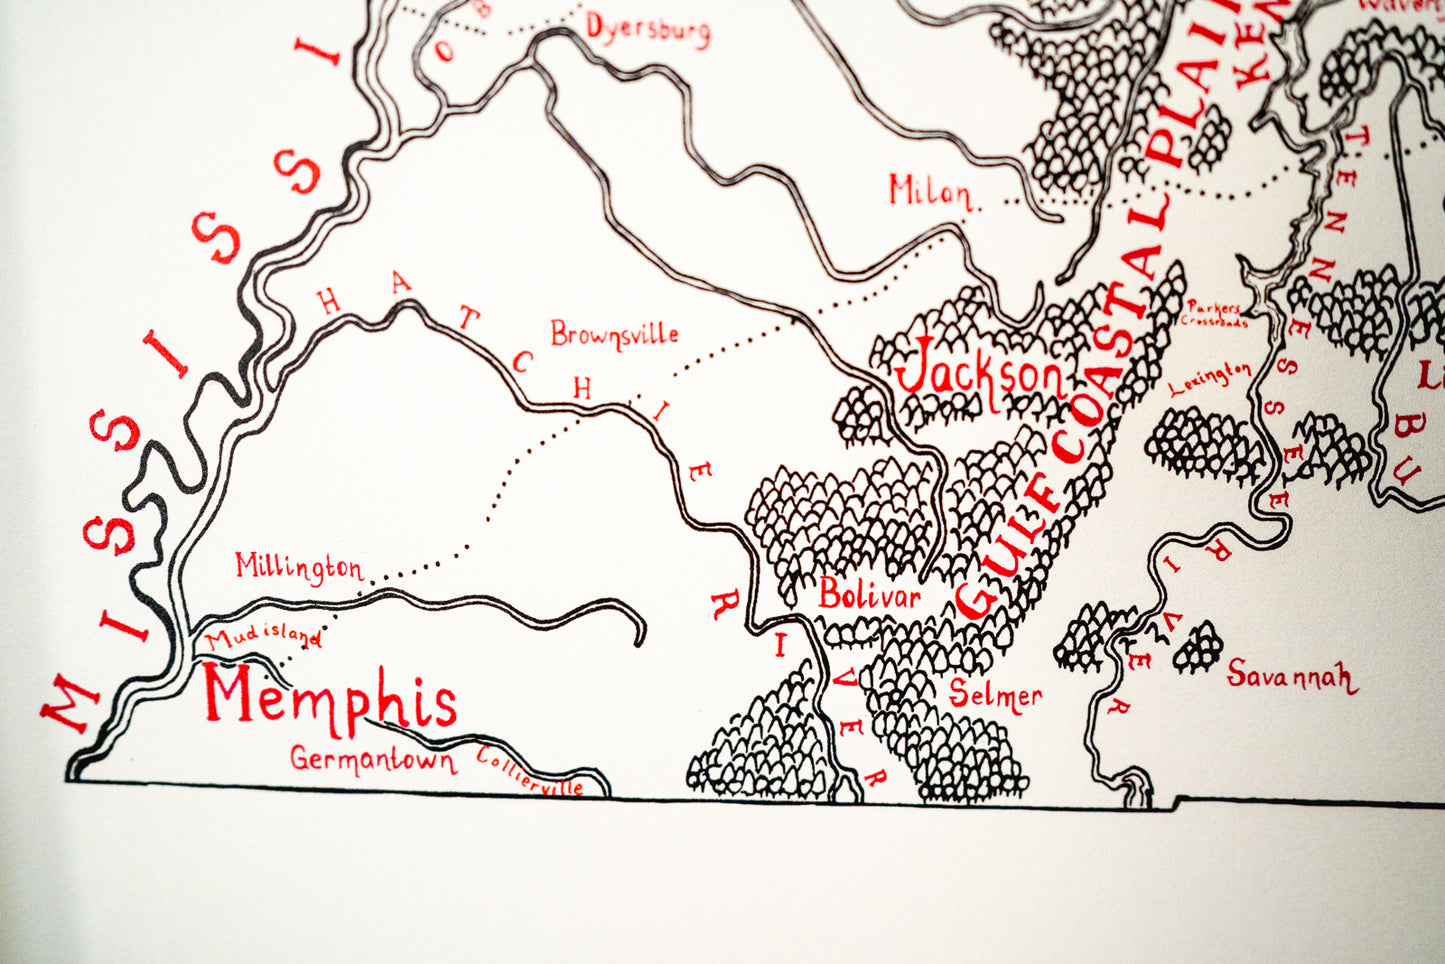 MISSISSI
OB
Dyersburg
Waverly
KEN
GULF COASTAL PLAIN
Milan
TENNESSEE RIVER
HATCHIE RIVER
Brownsville
Parkers
Crossroads
Jackson
Lexington
Li
BU
Millington
Bolivar
Mud island
Memphis
Savannah
Selmer
Germantown
Collierville